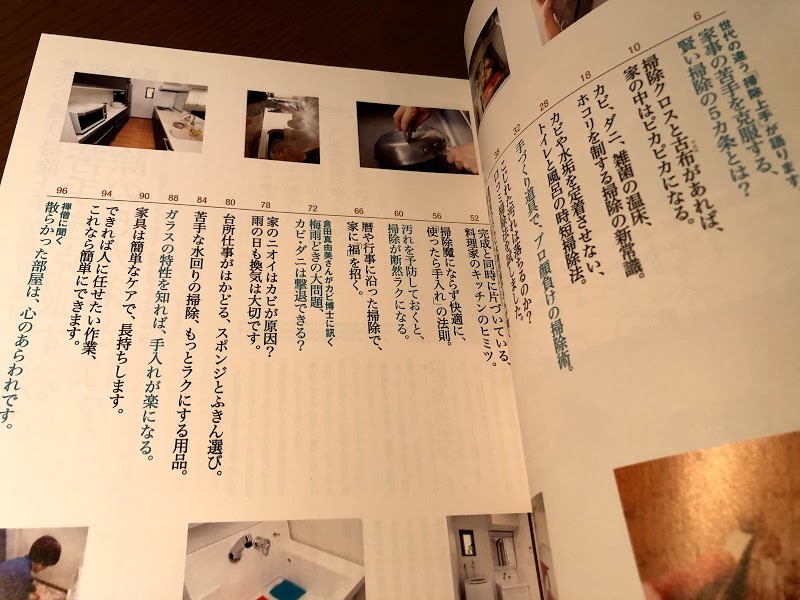 6
世代の違う「掃除上手」が語ります
家事の苦手を克服する、
賢い掃除の5カ条とは?
10
掃除クロスと古布があれば、
家の中はピカピカになる。
18
カビ、ダニ、雑菌の温床、
ホコリを制する掃除の新常識。
28
カビや水垢を定着させない、
トイレと風呂の時短掃除法。
32
手づくり道具で、プロ顔負けの掃除術。
38
こじれた汚れは落ちるのか?
52
完成と同時に片づいている、
料理家のキッチンのヒミツ。
56
掃除魔にならず快適に、
「使ったら手入れ」の法則。
60
汚れを予防しておくと、
掃除が断然ラクになる。
66
暦や行事に沿った掃除で、
家に「福」を招く。
72
倉田真由美さんがカビ博士に訊く
梅雨どきの大問題、
カビ・ダニは撃退できる?
78
家のニオイはカビが原因?
雨の日も換気は大切です。
80
台所仕事がはかどる、スポンジとふきん選び。
84
苦手な水回りの掃除、もっとラクにする用品。
88
ガラスの特性を知れば、手入れが楽になる。
90
家具は簡単なケアで、長持ちします。
94
できれば人に任せたい作業、
これなら簡単にできます。
96
禅僧に聞く
散らかった部屋は、心のあらわれです。